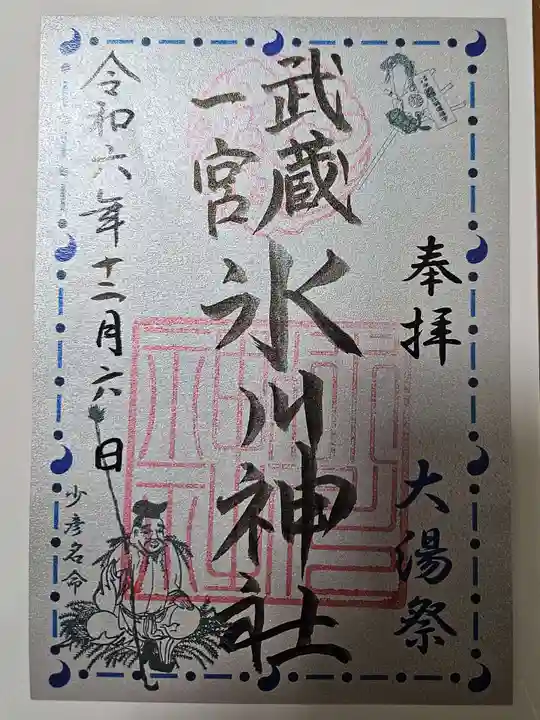 奉拝
大湯祭
武蔵
一宮
氷川神社
令和六年十二月六日
少彦名命